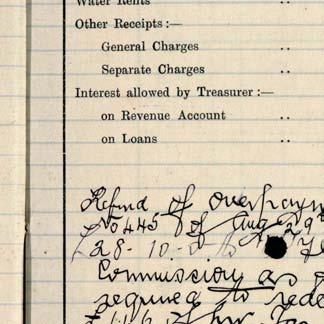 Water Rents ..
Other Receipts:—
General Charges ..
Separate Charges ..
Interest allowed by Treasurer:—
on Revenue Account ..
on Loans ..
Refund of overpaym
No 445 of Aug 29
28-10-0 to
Commission as
required to rede